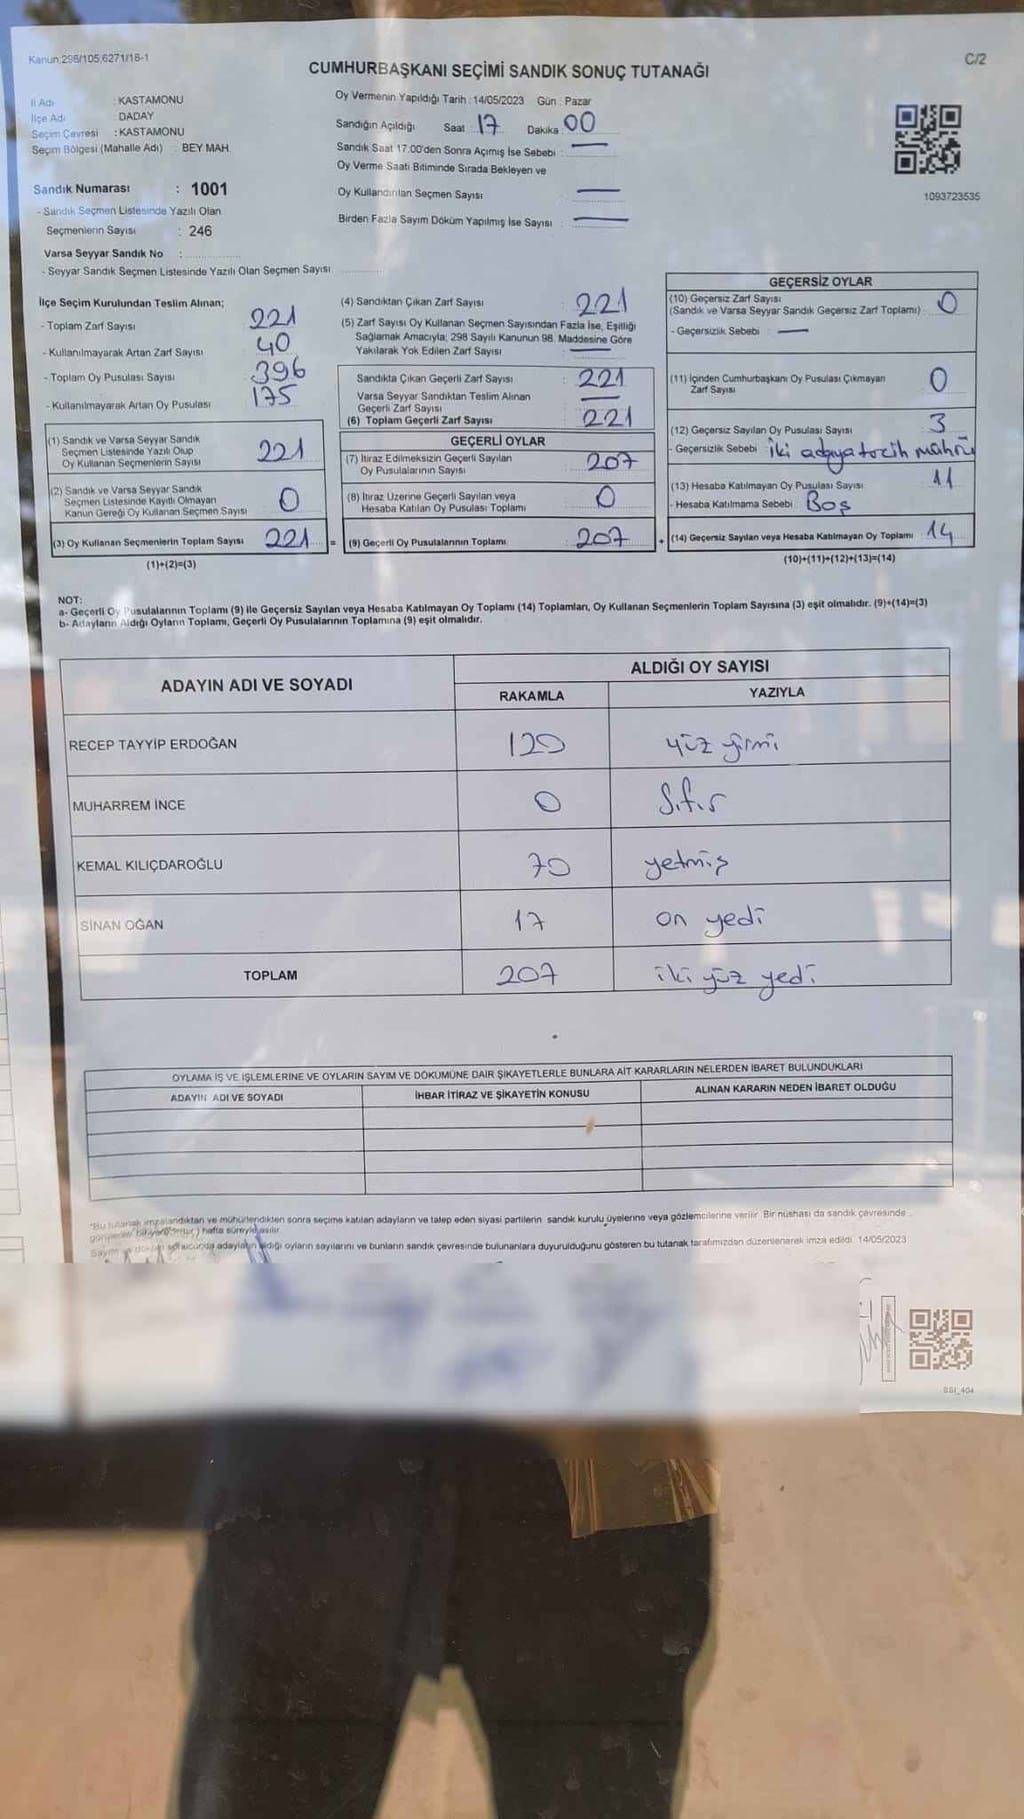 Kanun:298/105,6271/18-1
C/2
CUMHURBAŞKANI SEÇİMİ SANDIK SONUÇ TUTANAĞI
İl Adı : KASTAMONU
İlçe Adı : DADAY
Seçim Çevresi : KASTAMONU
Seçim Bölgesi (Mahalle Adı) : BEY MAH.
Sandık Numarası : 1001
- Sandık Seçmen Listesinde Yazılı Olan
Seçmenlerin Sayısı : 246
Varsa Seyyar Sandık No :
- Seyyar Sandık Seçmen Listesinde Yazılı Olan Seçmen Sayısı
Oy Vermenin Yapıldığı Tarih : 14/05/2023 Gün : Pazar
Sandığın Açıldığı Saat : 17 Dakika : 00
Sandık Saat 17:00'den Sonra Açımış İse Sebebi : —
Oy Verme Saati Bitiminde Sırada Bekleyen ve
Oy Kullandırılan Seçmen Sayısı —
Birden Fazla Sayım Döküm Yapılmış İse Sayısı : —
1093723535
İlçe Seçim Kurulundan Teslim Alınan;
- Toplam Zarf Sayısı 221
- Kullanılmayarak Artan Zarf Sayısı 40
- Toplam Oy Pusulası Sayısı 396
- Kullanılmayarak Artan Oy Pusulası 175
(1) Sandık ve Varsa Seyyar Sandık
Seçmen Listesinde Yazılı Olup
Oy Kullanan Seçmenlerin Sayısı 221
(2) Sandık ve Varsa Seyyar Sandık
Seçmen Listesinde Kayıtlı Olmayan
Kanun Gereği Oy Kullanan Seçmen Sayısı 0
(3) Oy Kullanan Seçmenlerin Toplam Sayısı 221 =
(1)+(2)=(3)
(4) Sandıktan Çıkan Zarf Sayısı : 221
(5) Zarf Sayısı Oy Kullanan Seçmen Sayısından Fazla İse, Eşitliği
Sağlamak Amacıyla; 298 Sayılı Kanunun 98. Maddesine Göre
Yakılarak Yok Edilen Zarf Sayısı —
Sandıkta Çıkan Geçerli Zarf Sayısı : 221
Varsa Seyyar Sandıktan Teslim Alınan
Geçerli Zarf Sayısı —
(6) Toplam Geçerli Zarf Sayısı : 221
GEÇERLİ OYLAR
(7) İtiraz Edilmeksizin Geçerli Sayılan
Oy Pusulalarının Sayısı : 207
(8) İtiraz Üzerine Geçerli Sayılan veya
Hesaba Katılan Oy Pusulası Toplamı : 0
(9) Geçerli Oy Pusulalarının Toplamı : 207 +
GEÇERSİZ OYLAR
(10) Geçersiz Zarf Sayısı
(Sandık ve Varsa Seyyar Sandık Geçersiz Zarf Toplamı) : 0
- Geçersizlik Sebebi : —
(11) İçinden Cumhurbaşkanı Oy Pusulası Çıkmayan
Zarf Sayısı 0
(12) Geçersiz Sayılan Oy Pusulası Sayısı : 3
- Geçersizlik Sebebi : iki adaya tercih mührü
(13) Hesaba Katılmayan Oy Pusulası Sayısı : 11
- Hesaba Katılmama Sebebi : Boş
(14) Geçersiz Sayılan veya Hesaba Katılmayan Oy Toplamı : 14
(10)+(11)+(12)+(13)=(14)
NOT:
a- Geçerli Oy Pusulalarının Toplamı (9) ile Geçersiz Sayılan veya Hesaba Katılmayan Oy Toplamı (14) Toplamları, Oy Kullanan Seçmenlerin Toplam Sayısına (3) eşit olmalıdır. (9)+(14)=(3)
b- Adayların Aldığı Oyların Toplamı, Geçerli Oy Pusulalarının Toplamına (9) eşit olmalıdır.
ADAYIN ADI VE SOYADI
ALDIĞI OY SAYISI
RAKAMLA YAZIYLA
RECEP TAYYİP ERDOĞAN 120 yüz yirmi
MUHARREM İNCE 0 Sıfır
KEMAL KILIÇDAROĞLU 70 yetmiş
SİNAN OĞAN 17 on yedi
TOPLAM 207 iki yüz yedi
OYLAMA İŞ VE İŞLEMLERİNE VE OYLARIN SAYIM VE DÖKÜMÜNE DAİR ŞİKAYETLERLE BUNLARA AİT KARARLARIN NELERDEN İBARET BULUNDUKLARI
ADAYIN ADI VE SOYADI İHBAR İTİRAZ VE ŞİKAYETİN KONUSU ALINAN KARARIN NEDEN İBARET OLDUĞU
*Bu tutanak imzalandıktan ve mühürlendikten sonra seçime katılan adayların ve talep eden siyasi partilerin sandık kurulu üyelerine veya gözlemcilerine verilir. Bir nüshası da sandık çevresinde
hafta süreyle asılır.
Sayım ve döküm sonucunda adayların aldığı oyların sayılarını ve bunların sandık çevresinde bulunanlara duyurulduğunu gösteren bu tutanak tarafımızdan düzenlenerek imza edildi. 14/05/2023
SSI_404